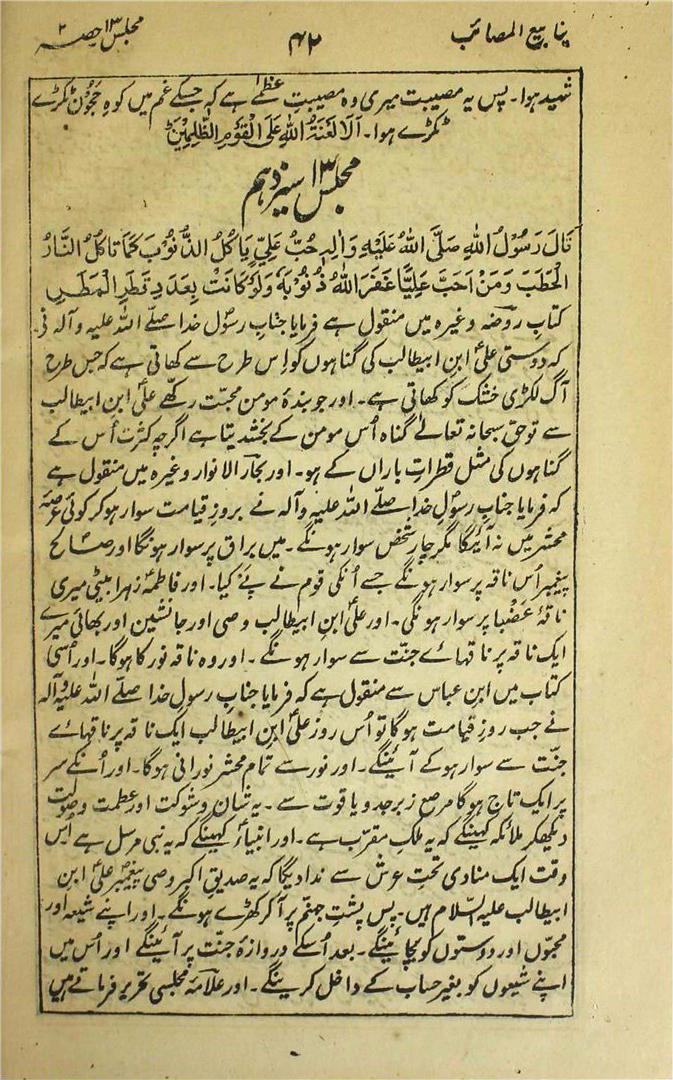 ینابیع المصائب
۴۲
مجلس ۱۳ حصہ ۲
شہید ہوا۔ پس یہ مصیبت میری وہ مصیبتِ عظمےٰ ہے کہ جسکے غم میں کوہِ حجون ٹکڑے
ٹکڑے ہوا۔ اَلَا لَعْنَةُ اللّٰهِ عَلَی الْقَوْمِ الظّٰلِمِیْنَ
مجلس ۱۳ سیزدہم
قَالَ رَسُوْلُ اللّٰهِ صَلَّی اللّٰهُ عَلَیْهِ وَاٰلِهٖ حُبُّ عَلِیٍّ یَاکُلُ الذُّنُوْبَ کَمَا تَاکُلُ النَّارُ
الْحَطَبَ وَمَنْ اَحَبَّ عَلِیًّا غَفَرَ اللّٰهُ ذُنُوْبَهٗ وَلَوْ کَانَتْ بِعَدَدِ قَطَرِ الْمَطَرِ
کتاب روضہ وغیرہ میں منقول ہے فرمایا جنابِ رسولِ خدا صلے اللہ علیہ وآلہ نے۔
کہ دوستی علیؑ ابنِ ابیطالب کی گناہوں کو اِس طرح سے کھاتی ہے کہ جس طرح
آگ لکڑی خشک کو کھاتی ہے۔ اور جو بندۂ مومن محبّت رکھے علیؑ ابن ابیطالب
سے تو حق سبحانہ تعالےٰ گناہ اُس مومن کے بخشدیتا ہے اگرچہ کثرت اُس کے
گناہوں کی مثل قطراتِ باراں کے ہو۔ اور بحار الانوار وغیرہ میں منقول ہے
کہ فرمایا جنابِ رسولِ خدا صلے اللہ علیہ وآلہ نے بروزِ قیامت سوار ہو کر کوئی عرصۂ
محشر میں نہ آئیگا مگر چار شخص سوار ہونگے۔ میں براق پر سوار ہونگا اور صالح
پیغمبر اُس ناقہ پر سوار ہونگے جسے اُنکی قوم نے پئے کیا۔ اور فاطمہؑ زہرا بیٹی میری
ناقۂ عَضْبا پر سوار ہونگی۔ اور علیؑ ابنِ ابیطالب وصی اور جانشین اور بھائی میرے
ایک ناقہ پر ناقہاے جنّت سے سوار ہونگے۔ اور وہ ناقہ نور کا ہوگا۔ اور اُسی
کتاب میں ابنِ عباس سے منقول ہے کہ فرمایا جنابِ رسولِ خدا صلے اللہ علیہ وآلہ
نے جب روزِ قیامت ہوگا تو اُس روز علیؑ ابن ابیطالب ایک ناقہ پر ناقہاے
جنّت سے سوار ہو کے آئینگے۔ اور نور سے تمام محشر نورانی ہوگا۔ اور اُنکے سر
پر ایک تاج ہوگا مرصع زبرجد و یاقوت سے۔ یہ شان و شوکت اور عظمت و صولت
دیکھکر ملائکہ کہینگے کہ یہ ملکِ مقرّب ہے۔ اور انبیاءؑ کہینگے کہ یہ نبی مرسل ہے اُس
وقت ایک منادی تحتِ عرش سے ندا دیگا کہ یہ صدیق اکبر وصی پیغمبر علیؑ ابن
ابیطالب علیہ السّلام ہیں۔ پس پشتِ جہنّم پر آکر کھڑے ہونگے۔ اور اپنے شیعہ اور
محبّوں اور دوستوں کو بچائینگے۔ بعد اُسکے دروازۂ جنّت پر آئینگے اور اُس میں
اپنے شیعوں کو بغیر حساب کے داخل کرینگے۔ اور علّامہ مجلسی تحریر فرماتے ہیں